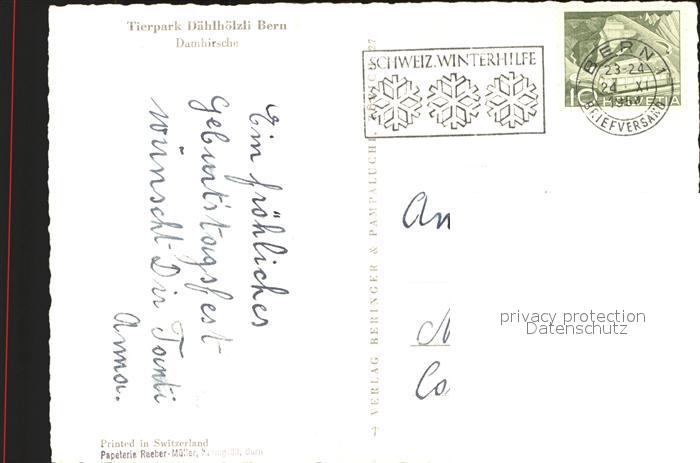 Tierpark Dählhölzli Bern
Damhirsche
Ein fröhliches
Geburtstagsfest
wünscht Dir Tanti
Anna.
Printed in Switzerland
Papeterie Raeber-Müller, Bern
VERLAG BERINGER & PAMPALUCHI, ZÜRICH 27
SCHWEIZ. WINTERHILFE
BERN 1
23-24
24 XI
BRIEFVERSAND
10 HELVETIA
An
privacy protection
Datenschutz
Co